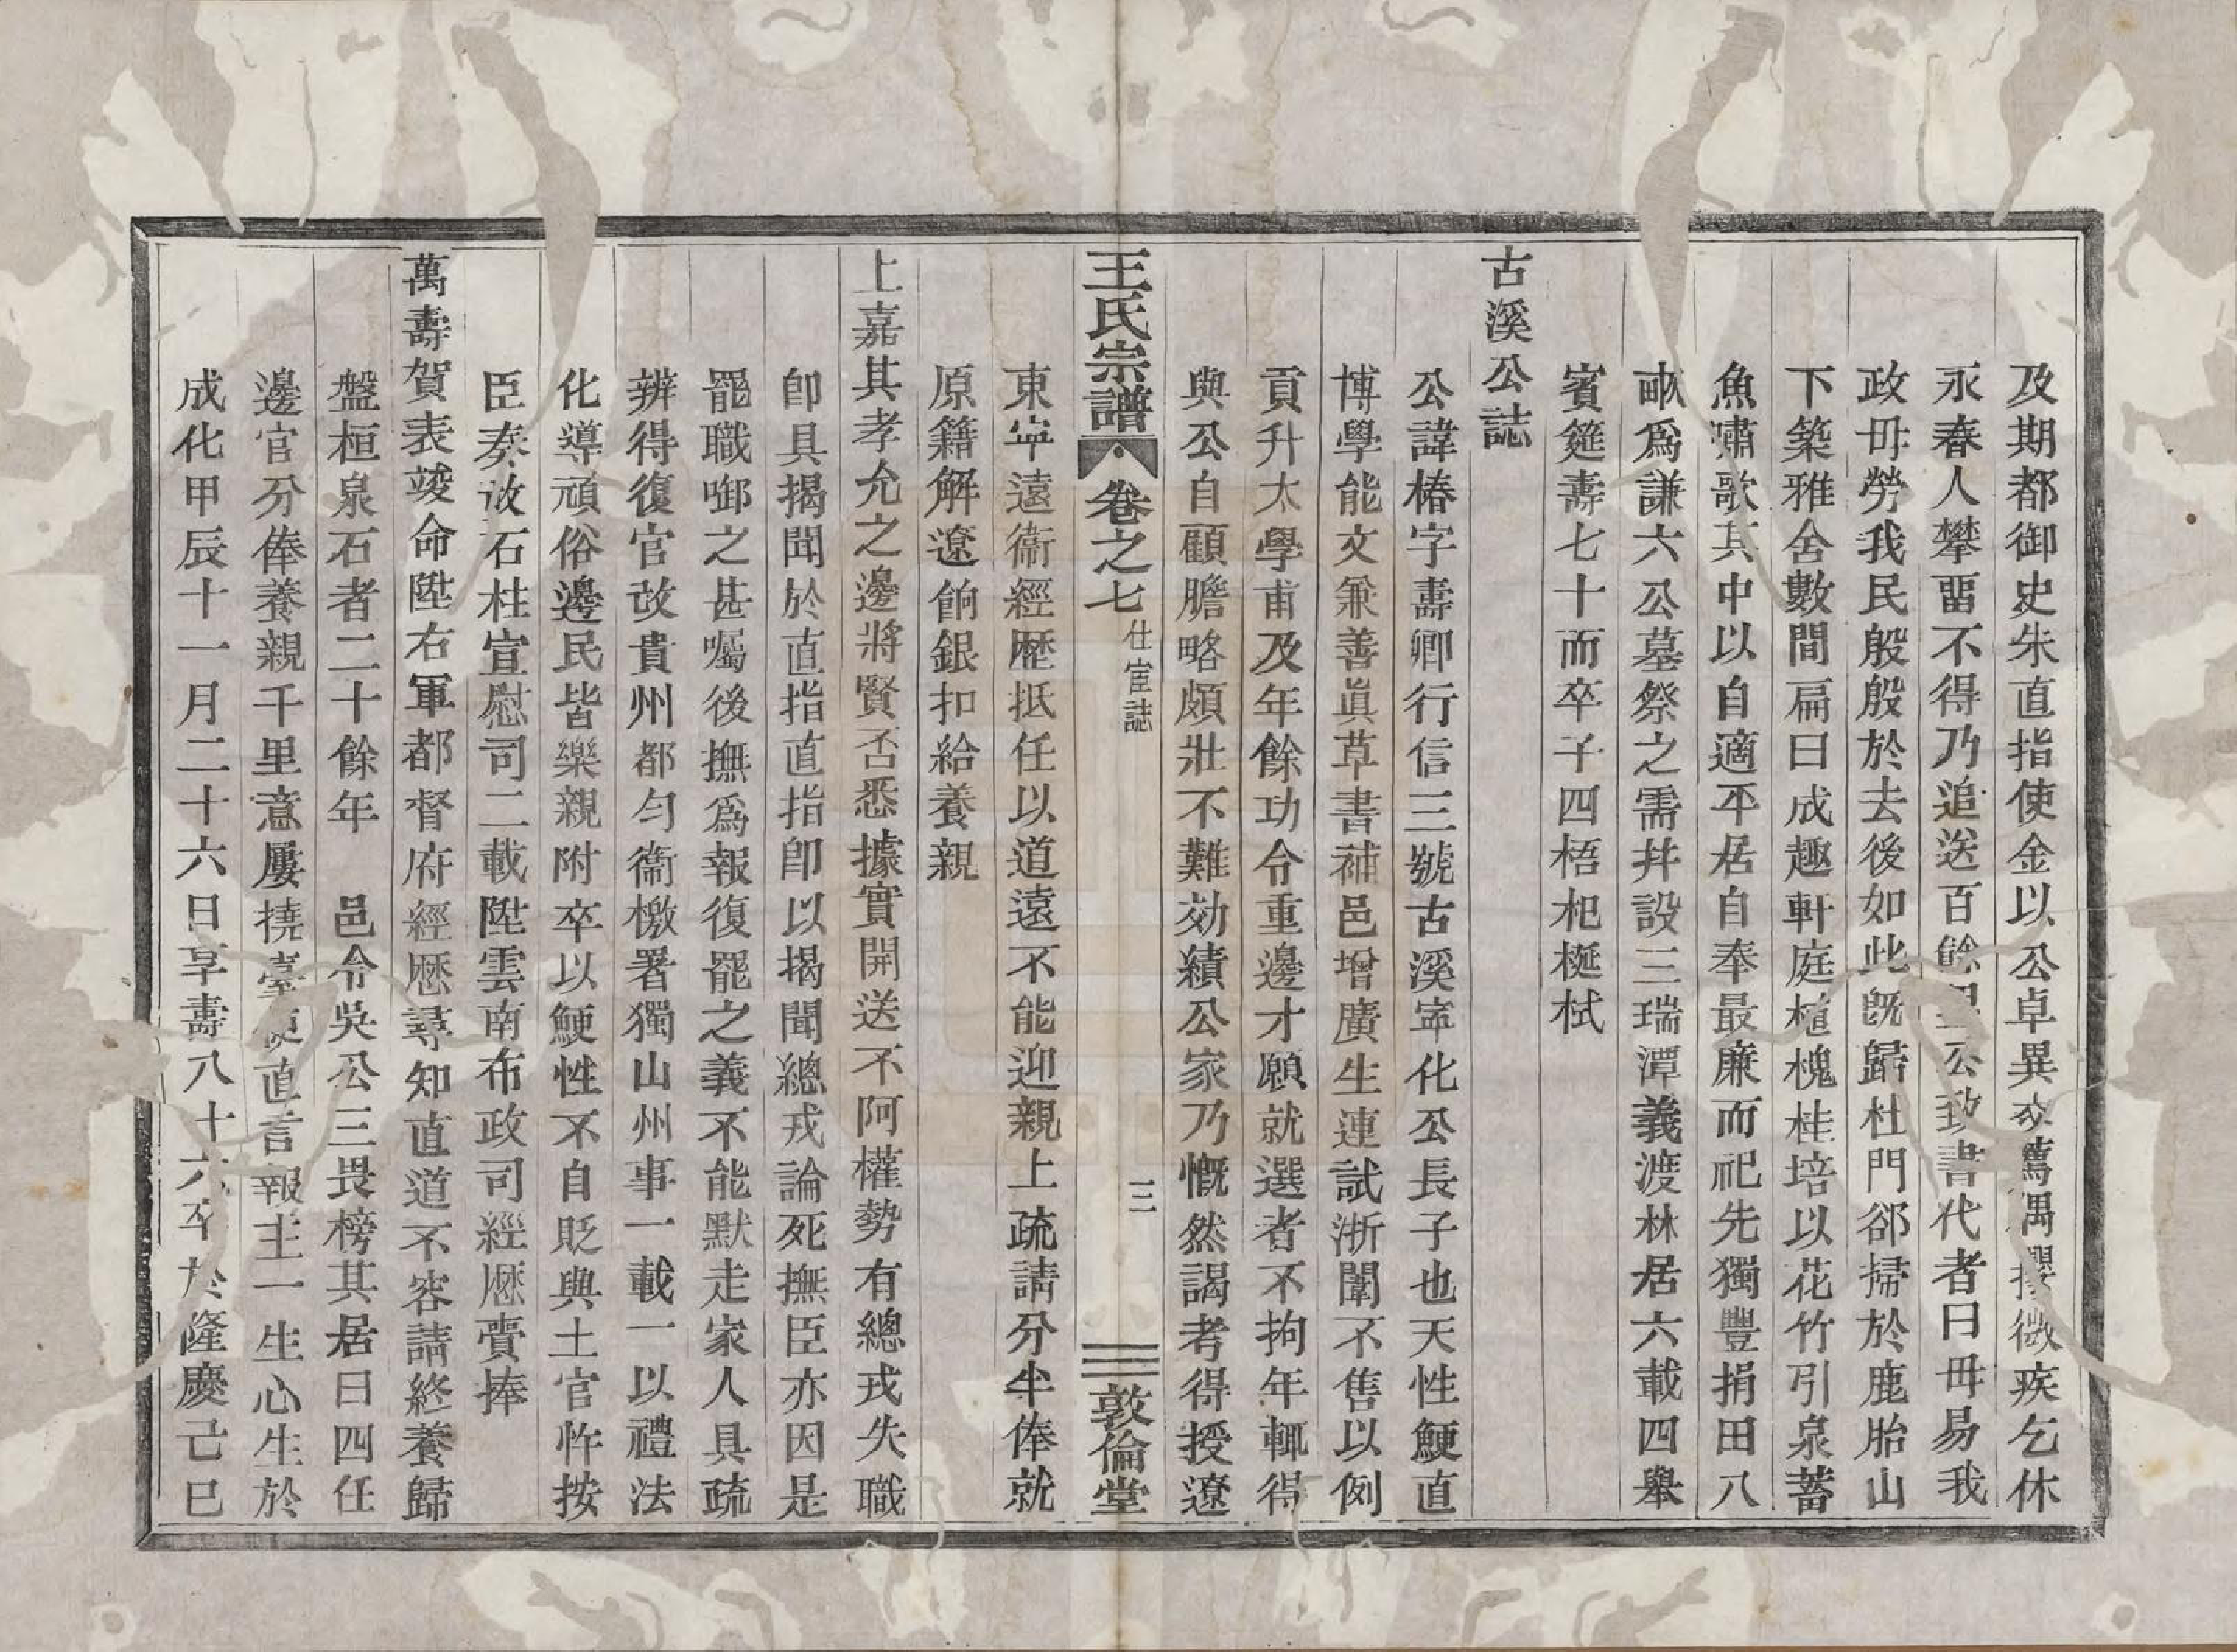 及期都御史朱直指使金以公卓異交薦偶攖微疾乞休
永春人攀畱不得乃追送百餘里公致書代者曰毋易我
政毋勞我民殷殷於去後如此旣歸杜門郤掃於鹿胎山
下築雅舍數間扁曰成趣軒庭植槐桂培以花竹引泉蓄
魚嘯歌其中以自適平居自奉最廉而祀先獨豐捐田八
畝爲謙六公墓祭之需井設三瑞潭義渡林居六載四舉
賓筵壽七十而卒子四梧杞梴栻
古溪公誌
公諱椿字壽卿行信三號古溪寍化公長子也天性鯁直
博學能文兼善眞草書補邑增廣生連試浙闈不售以例
貢升太學甫及年餘功令重邊才願就選者不拘年輒得
與公自顧膽略頗壯不難効績公家乃慨然謁考得授遼
王氏宗譜 卷之七 仕宦誌 三 敦倫堂
東寍遠衞經歷抵任以道遠不能迎親上疏請分半俸就
原籍解遼餉銀扣給養親
上嘉其孝允之邊將賢否悉據實開送不阿權勢有總戎失職
卽具揭聞於直指直指卽以揭聞總戎論死撫臣亦因是
罷職啣之甚囑後撫爲報復罷之義不能默走家人具疏
辨得復官改貴州都勻衞檄署獨山州事一載一以禮法
化導頑俗邊民皆樂親附卒以鯁性不自貶與土官忤按
臣奏改石柱宣慰司二載陞雲南布政司經歷賫捧
萬壽賀表竣命陞右軍都督府經歷尋知直道不容請終養歸
盤桓泉石者二十餘年 邑令吳公三畏榜其居曰四任
邊官分俸養親千里意屢撓臺使直言報主一生心生於
成化甲辰十一月二十六日享壽八十六卒於隆慶己巳